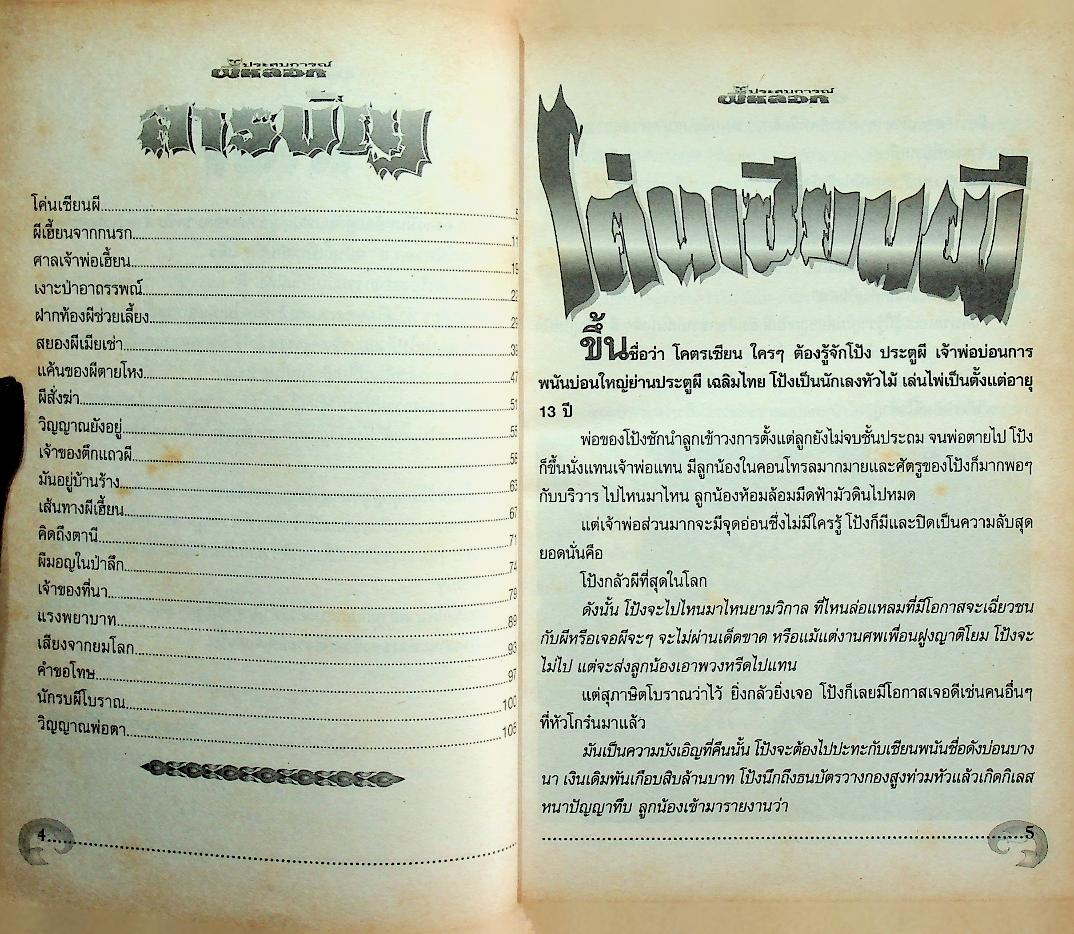 ประสบการณ์
ผีหลอก
สารบัญ
โค่นเซียนผี
ผีเฮี้ยนจากนรก
ศาลเจ้าพ่อเฮี้ยน
เงาะป่าอาถรรพณ์
ฝากท้องผีช่วยเลี้ยง
สยองผีเมียเช่า
แค้นของผีตายโหง.....47
ผีสั่งฆ่า.....51
วิญญาณยังอยู่
เจ้าของตึกแถวผี
มันอยู่บ้านร้าง.....63
เส้นทางผีเฮี้ยน.....67
คิดถึงตานี.....71
ผีมอญในป่าลึก.....74
เจ้าของที่นา.....79
แรงพยาบาท.....89
เสียงจากยมโลก.....93
คำขอโทษ.....97
นักรบผีโบราณ.....100
วิญญาณพ่อตา.....106
4
ประสบการณ์
ผีหลอก
โค่นเซียนผี
ขึ้นชื่อว่า โคตรเซียน ใครๆ ต้องรู้จักโป้ง ประตูผี เจ้าพ่อบ่อนการ
พนันบ่อนใหญ่ย่านประตูผี เฉลิมไทย โป้งเป็นนักเลงหัวไม้ เล่นไพ่เป็นตั้งแต่อายุ
13 ปี
พ่อของโป้งชักนำลูกเข้าวงการตั้งแต่ลูกยังไม่จบชั้นประถม จนพ่อตายไป โป้ง
ก็ขึ้นนั่งแทนเจ้าพ่อแทน มีลูกน้องในคอนโทรลมากมายและศัตรูของโป้งก็มากพอๆ
กับบริวาร ไปไหนมาไหน ลูกน้องห้อมล้อมมืดฟ้ามัวดินไปหมด
แต่เจ้าพ่อส่วนมากจะมีจุดอ่อนซึ่งไม่มีใครรู้ โป้งก็มีและปิดเป็นความลับสุด
ยอดนั่นคือ
โป้งกลัวผีที่สุดในโลก
ดังนั้น โป้งจะไปไหนมาไหนยามวิกาล ที่ไหนล่อแหลมที่มีโอกาสจะเฉี่ยวชน
กับผีหรือเจอผีจะๆ จะไม่ผ่านเด็ดขาด หรือแม้แต่งานศพเพื่อนฝูงญาติโยม โป้งจะ
ไม่ไป แต่จะส่งลูกน้องเอาพวงหรีดไปแทน
แต่สุภาษิตโบราณว่าไว้ ยิ่งกลัวยิ่งเจอ โป้งก็เลยมีโอกาสเจอดีเช่นคนอื่นๆ
ที่หัวโกร๋นมาแล้ว
มันเป็นความบังเอิญที่คืนนั้น โป้งจะต้องไปปะทะกับเซียนพนันชื่อดังบ่อนบาง
นา เงินเดิมพันเกือบสิบล้านบาท โป้งนึกถึงธนบัตรวางกองสูงท่วมหัวแล้วเกิดกิเลส
หนาปัญญาทึบ ลูกน้องเข้ามารายงานว่า
5